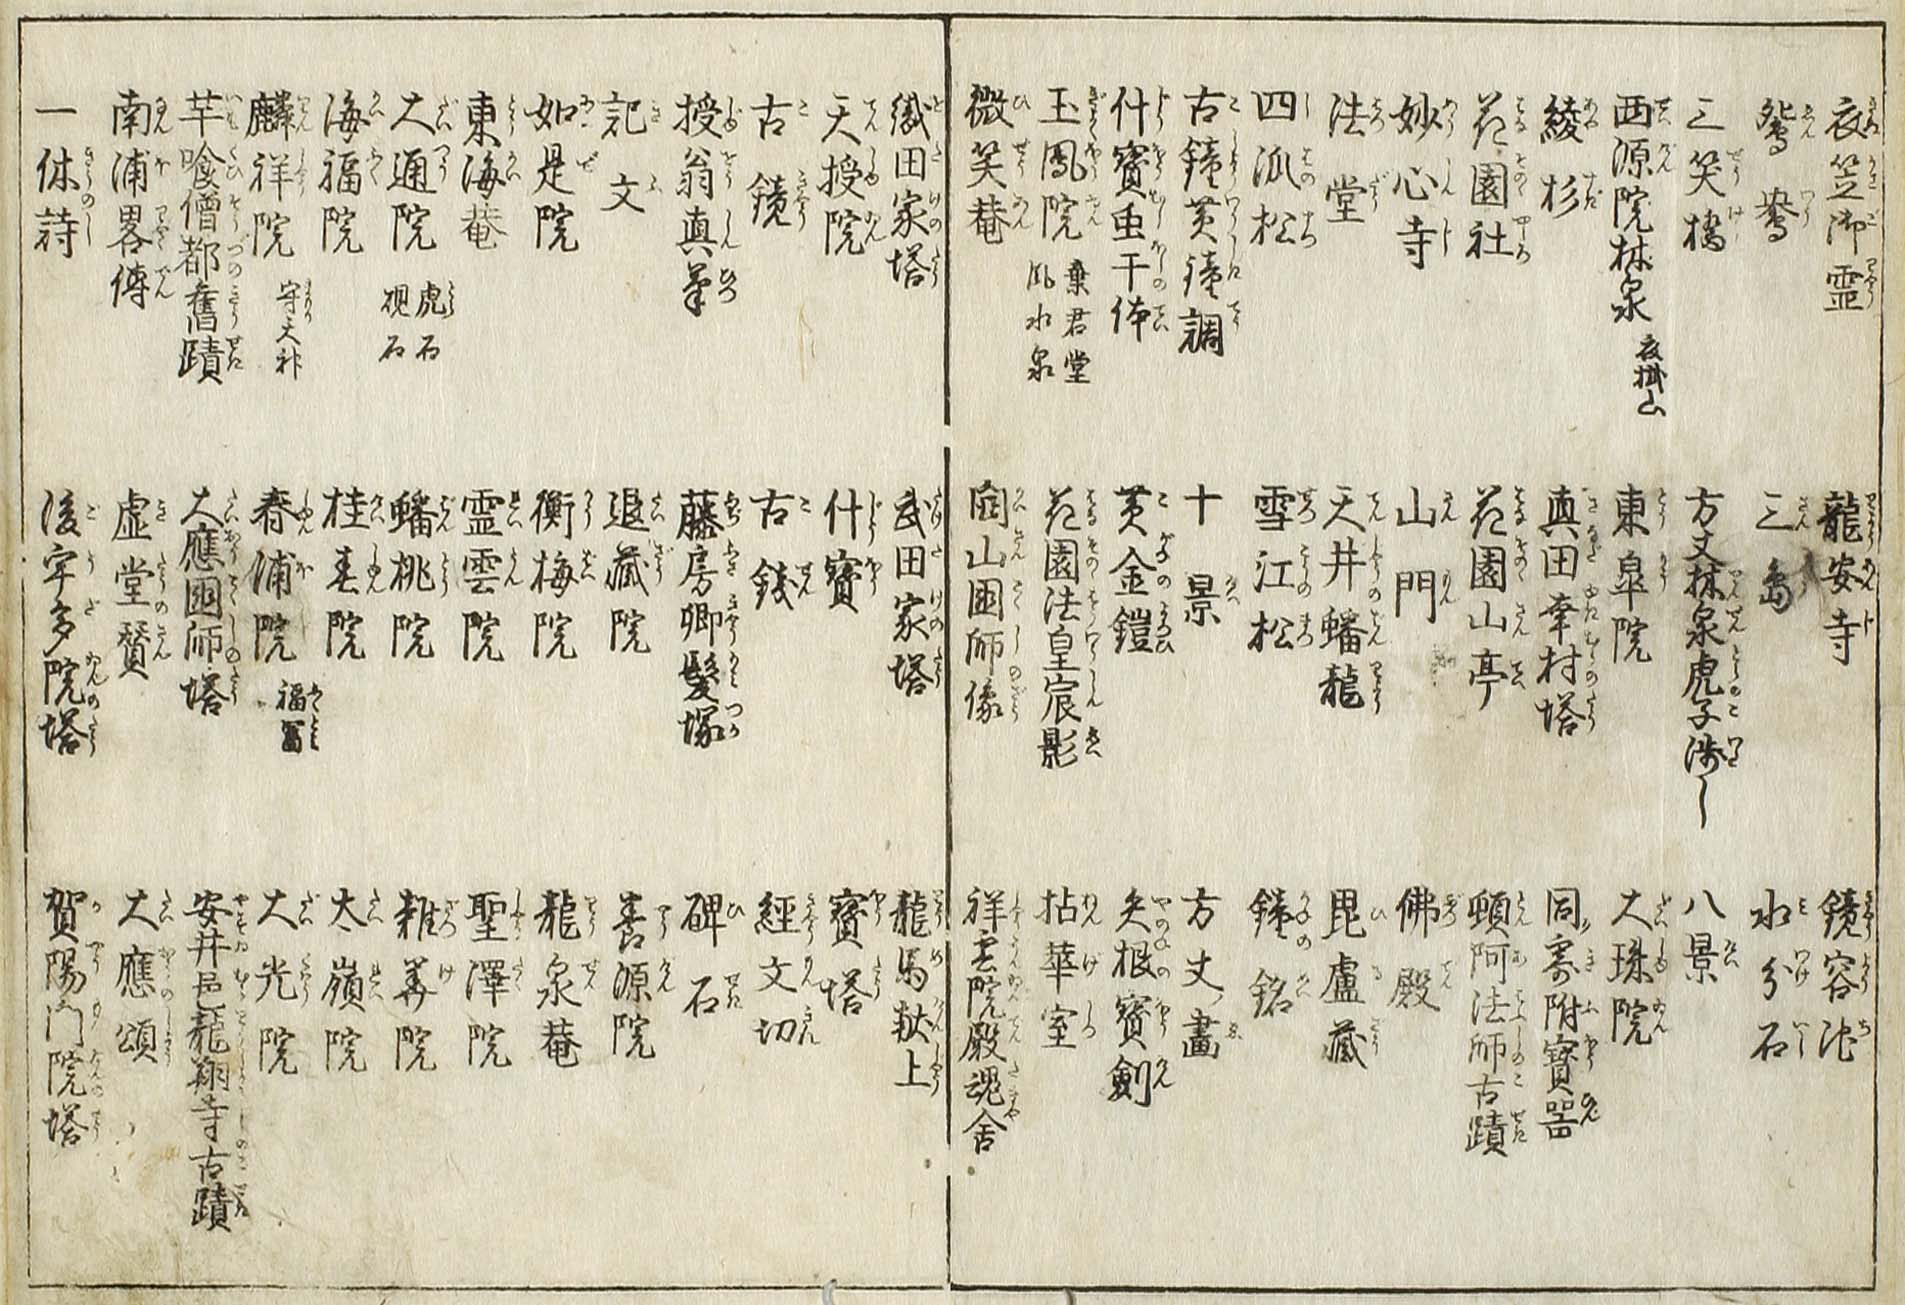 衣笠御霊　龍安寺　鏡容池
鴛鴦　三島　水分石
三笑橋　方丈林泉虎子渉し　八景
西源院林泉 衣掛山　東皐院　大珠院
綾杉　真田幸村塔　同寄附寶器
花園社　花園山亭　頓阿法師古蹟
妙心寺　山門　佛殿
法堂　天井蟠龍　毘盧藏
四派松　雪江松　鐘銘
古鐘黄鐘調　十景　方丈畫
什寶虫干体　黄金鎧　矢根寶劍
玉鳳院 棄君堂 風水泉　花園法皇宸影　拈華室
微笑菴　開山國師像　祥雲院殿魂舎
織田家塔　武田家塔　龍馬散上
天授院　什寶　寶塔
古鏡　古錢　經文切
授翁真筆　藤房卿髮塚　碑石
記文　退藏院　善源院
如是院　衡梅院　龍泉菴
東海菴　霊雲院　聖澤院
大通院 虎石 硯石　蟠桃院　雜華院
海福院　桂春院　太嶺院
麟祥院 守天神　春浦院 福富　大光院
芋喰僧都舊蹟　大應國師塔　安井邑龍翔寺古蹟
南浦畧傳　虚堂賛　大應頌
一休詩　後宇多院塔　賀陽門院塔